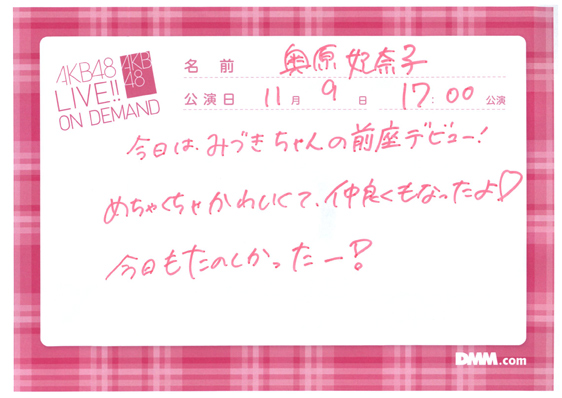 AKB48
LIVE!!
ON DEMAND
AKB
48
名前 奥原妃奈子
公演日 11月9日 17:00公演
今日は、みづきちゃんの前座デビュー!
めちゃくちゃかわいくて、仲良くもなったよ♡
今日もたのしかったー!
DMM.com